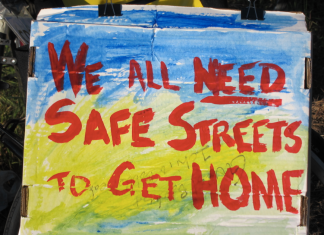 WE ALL NEED
SAFE STREETS
TO GET HOME